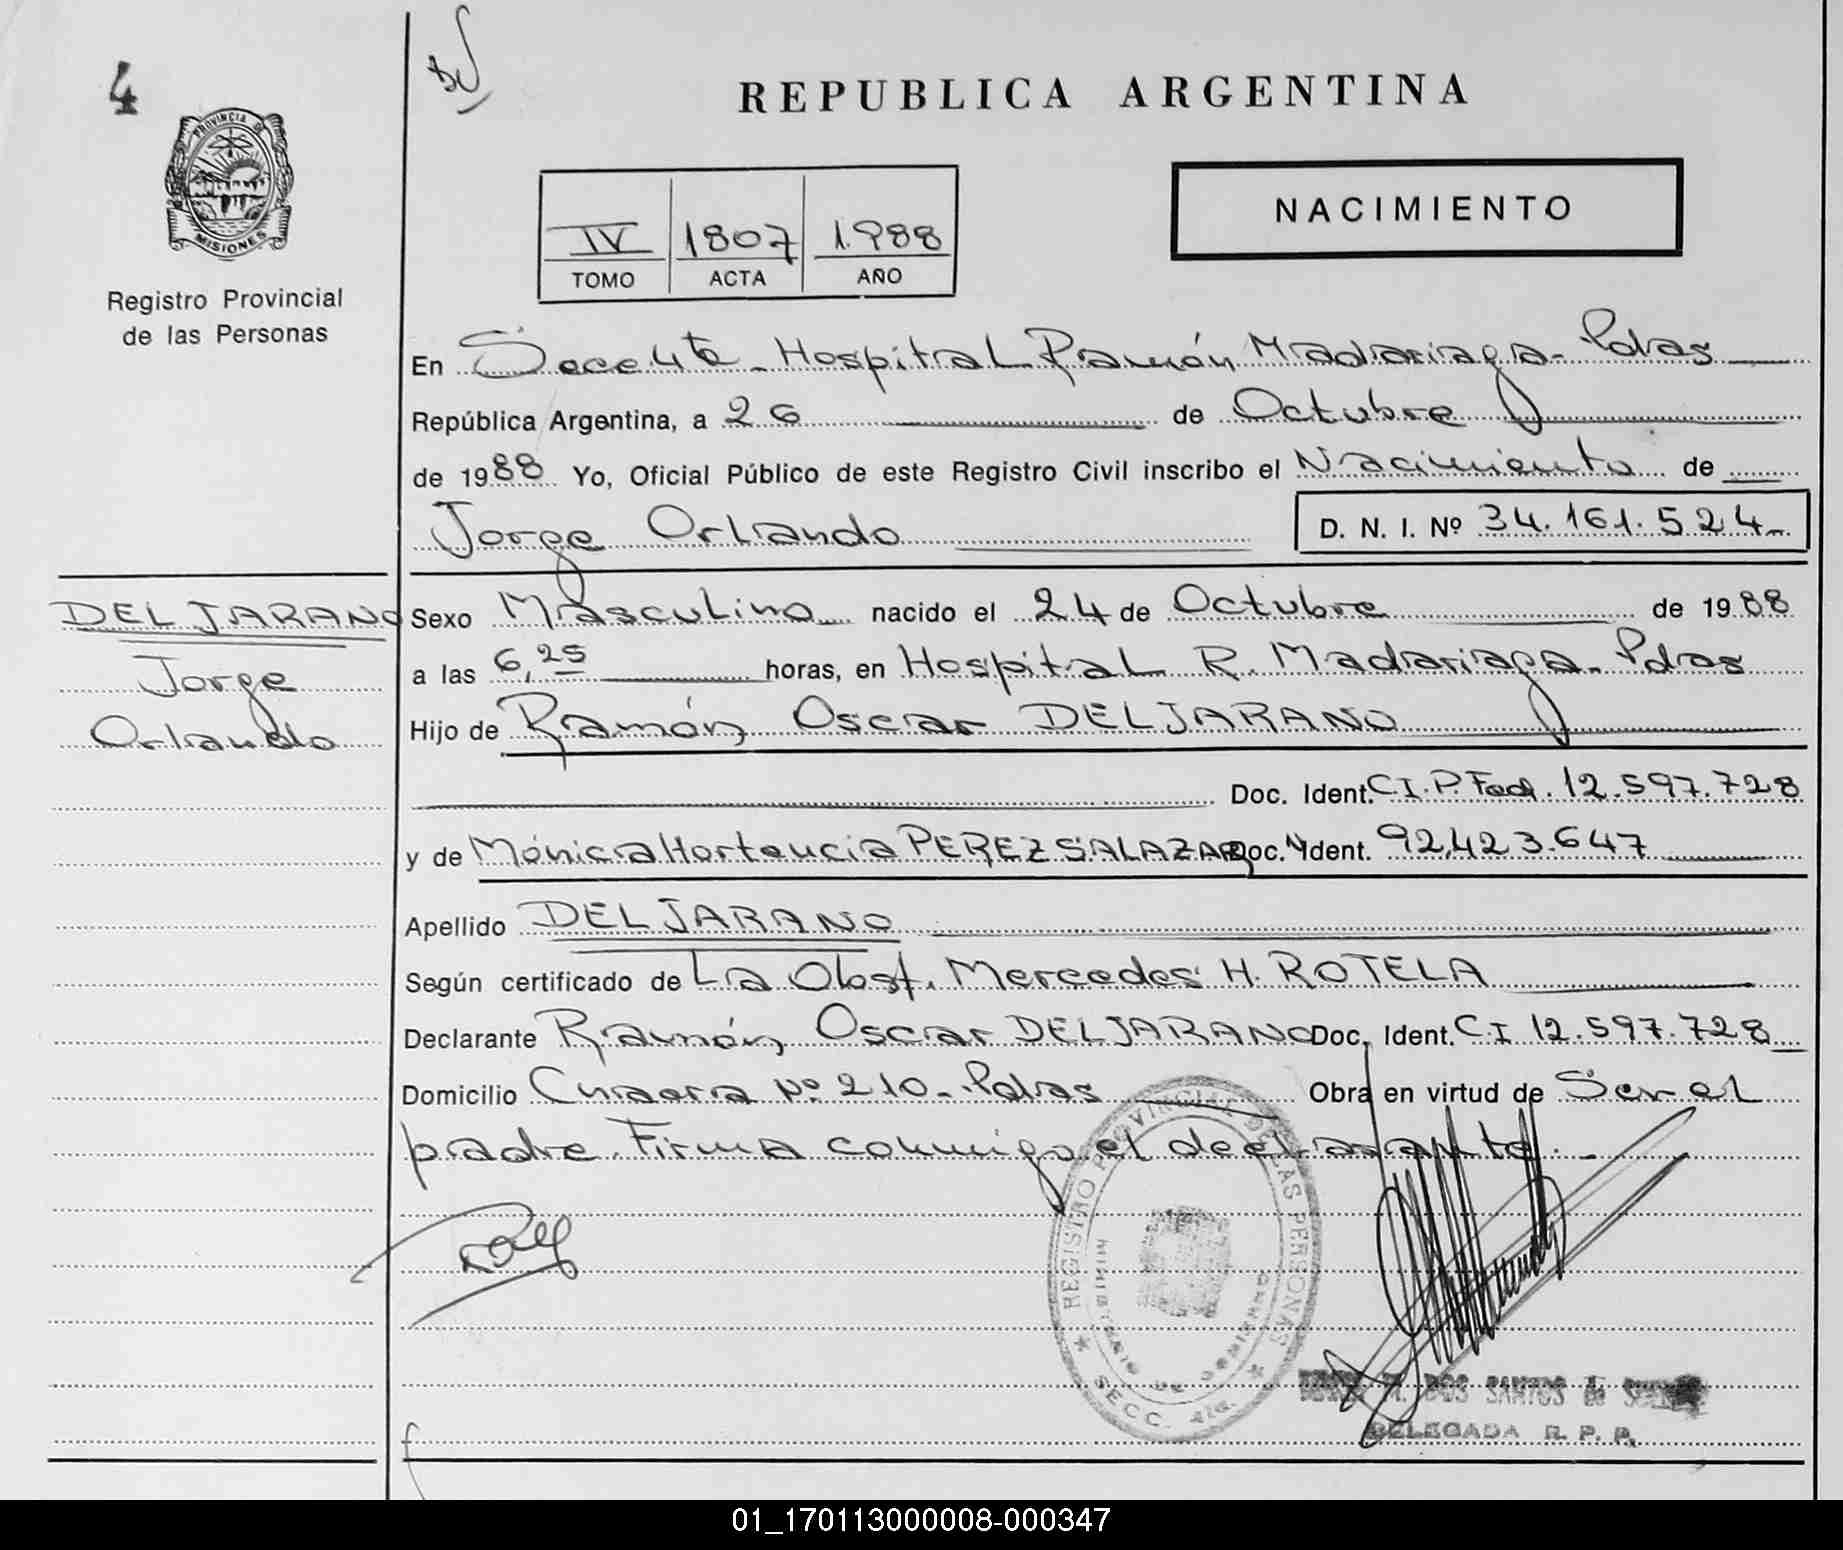 4
PROVINCIA DE
MISIONES
Registro Provincial
de las Personas
REPUBLICA ARGENTINA
NACIMIENTO
IV 1807 1.988
TOMO ACTA AÑO
En Secc 4ta - Hospital Ramón Madariaga - Pdas
República Argentina, a 26 de Octubre
de 1988 Yo, Oficial Público de este Registro Civil inscribo el Nacimiento de
Jorge Orlando D. N. I. Nº 34.161.524-
DEL JARANO
Jorge
Orlando
Sexo Masculino nacido el 24 de Octubre de 1988
a las 6,25 horas, en Hospital R. Madariaga - Pdas
Hijo de Ramón Oscar DEL JARANO
Doc. Ident. C.I.P. Fed. 12.597.728
y de Mónica Hortencia PEREZ SALAZAR Doc. Ident. 92.423.647
Apellido DEL JARANO
Según certificado de La Obst. Mercedes H. ROTELA
Declarante Ramón Oscar DEL JARANO Doc. Ident. C.I 12.597.728
Domicilio Nº 210 - Pdas Obra en virtud de Ser el
padre. Firma conmigo el declarante. -
REGISTRO PROVINCIAL DE LAS PERSONAS
MINISTERIO DE GOBIERNO
SECC. 4ta.
M. DOS SANTOS de
DELEGADA R. P. P.
01_170113000008-000347